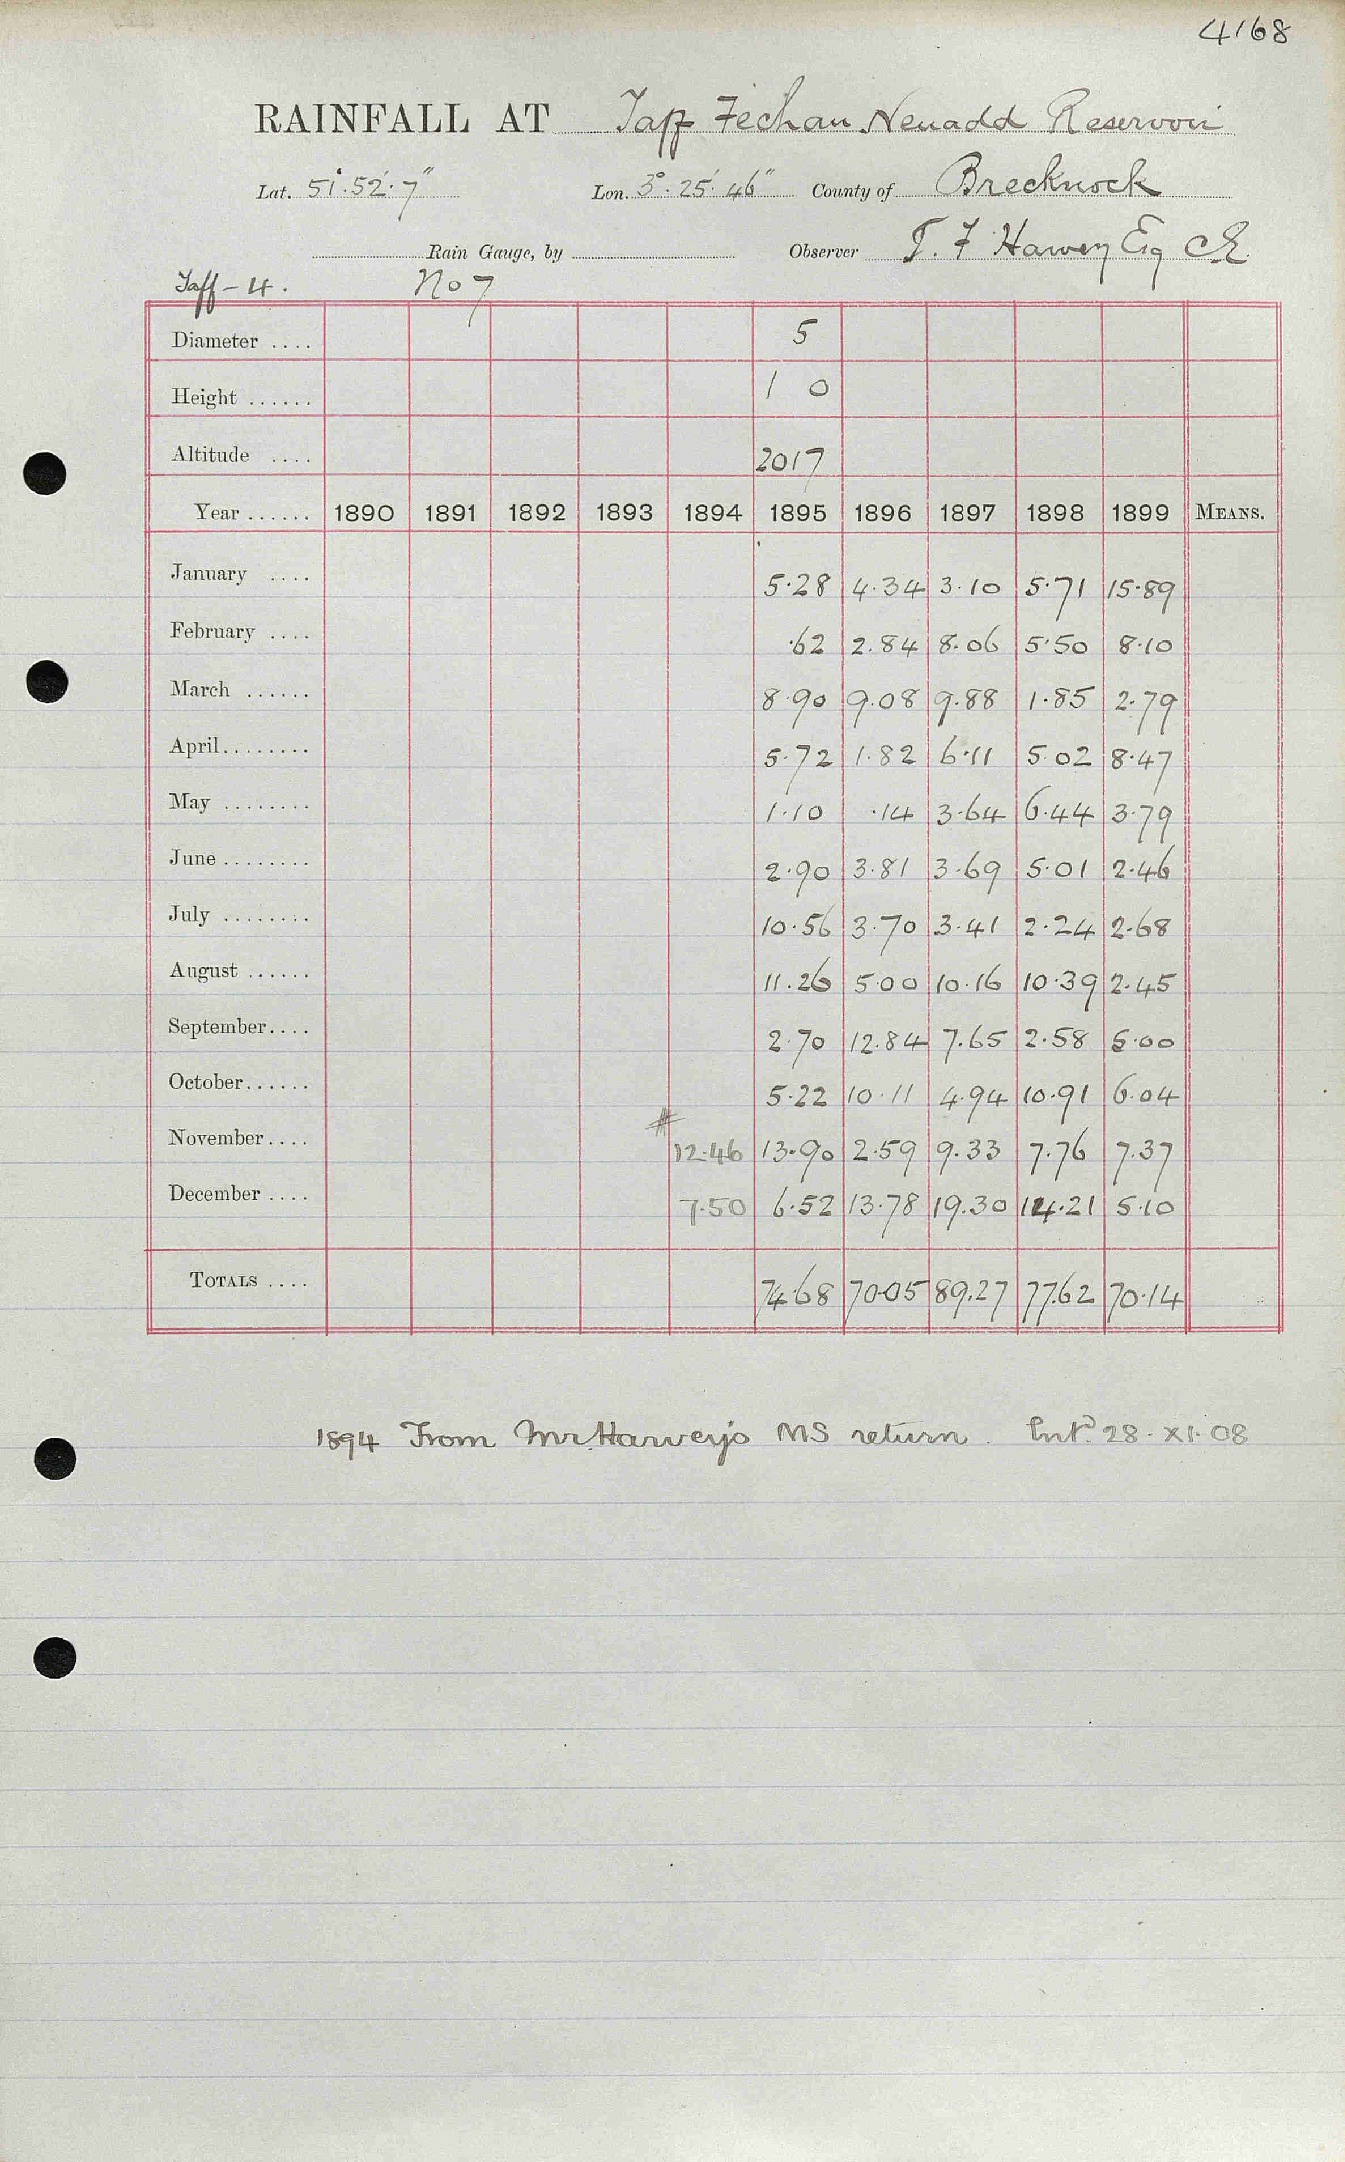 4168
RAINFALL AT Taff Fechan Neuadd Reservoir
Lat. 51°.52'.7" Lon. 3°.25'.46" County of Brecknock
Rain Gauge, by Observer T. F Harvey Esq CE
Taff-4. No 7
Diameter .... 5
Height ...... 1 0
Altitude .... 2017
Year ...... 1890 1891 1892 1893 1894 1895 1896 1897 1898 1899 MEANS.
January .... 5.28 4.34 3.10 5.71 15.89
February .... .62 2.84 8.06 5.50 8.10
March ...... 8.90 9.08 9.88 1.85 2.79
April........ 5.72 1.82 6.11 5.02 8.47
May ........ 1.10 .14 3.64 6.44 3.79
June ........ 2.90 3.81 3.69 5.01 2.46
July ........ 10.56 3.70 3.41 2.24 2.68
August ...... 11.26 5.00 10.16 10.39 2.45
September.... 2.70 12.84 7.65 2.58 5.00
October...... 5.22 10.11 4.94 10.91 6.04
November.... # 12.46 13.90 2.59 9.33 7.76 7.37
December .... 7.50 6.52 13.78 19.30 14.21 5.10
TOTALS .... 74.68 70.05 89.27 77.62 70.14
1894 From Mr. Harvey's MS return. Entd 28.XI.08